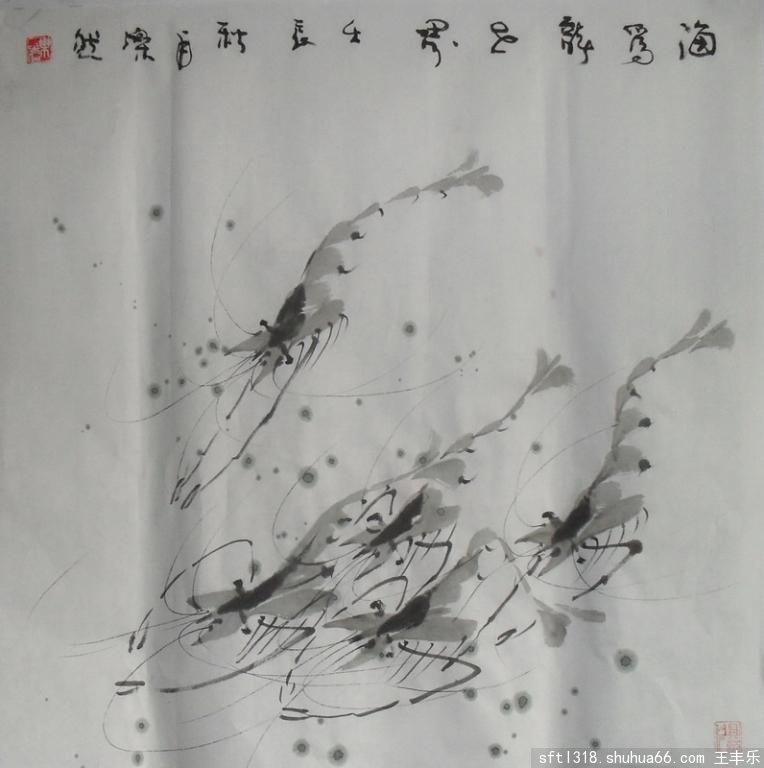 海爲龍世界壬辰秋月然
sftl318.shuhua66.com 王丰乐